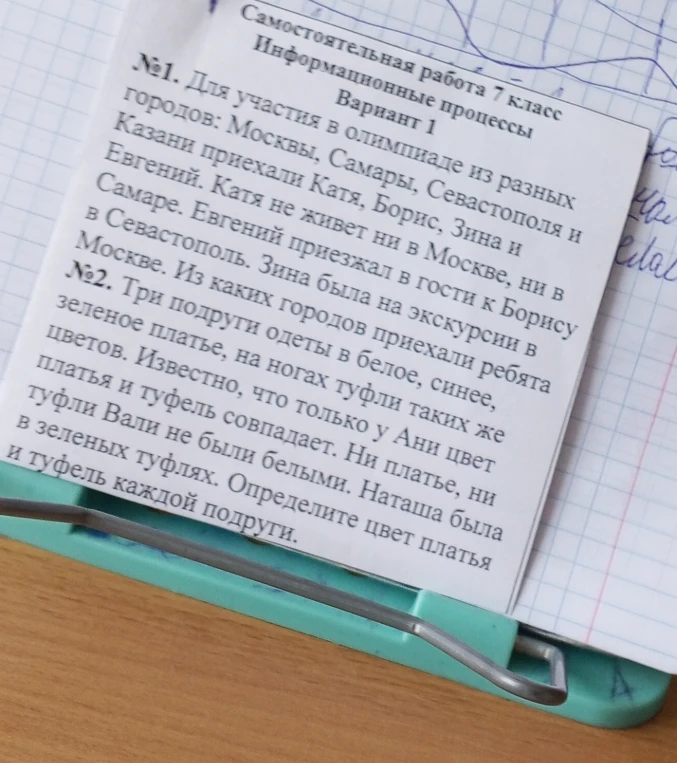 Самостоятельная работа 7 класс
Информационные процессы
Вариант 1
№1. Для участия в олимпиаде из разных
городов: Москвы, Самары, Севастополя и
Казани приехали Катя, Борис, Зина и
Евгений. Катя не живет ни в Москве, ни в
Самаре. Евгений приезжал в гости к Борису
в Севастополь. Зина была на экскурсии в
Москве. Из каких городов приехали ребята
№2. Три подруги одеты в белое, синее,
зеленое платье, на ногах туфли таких же
цветов. Известно, что только у Ани цвет
платья и туфель совпадает. Ни платье, ни
туфли Вали не были белыми. Наташа была
в зеленых туфлях. Определите цвет платья
и туфель каждой подруги.